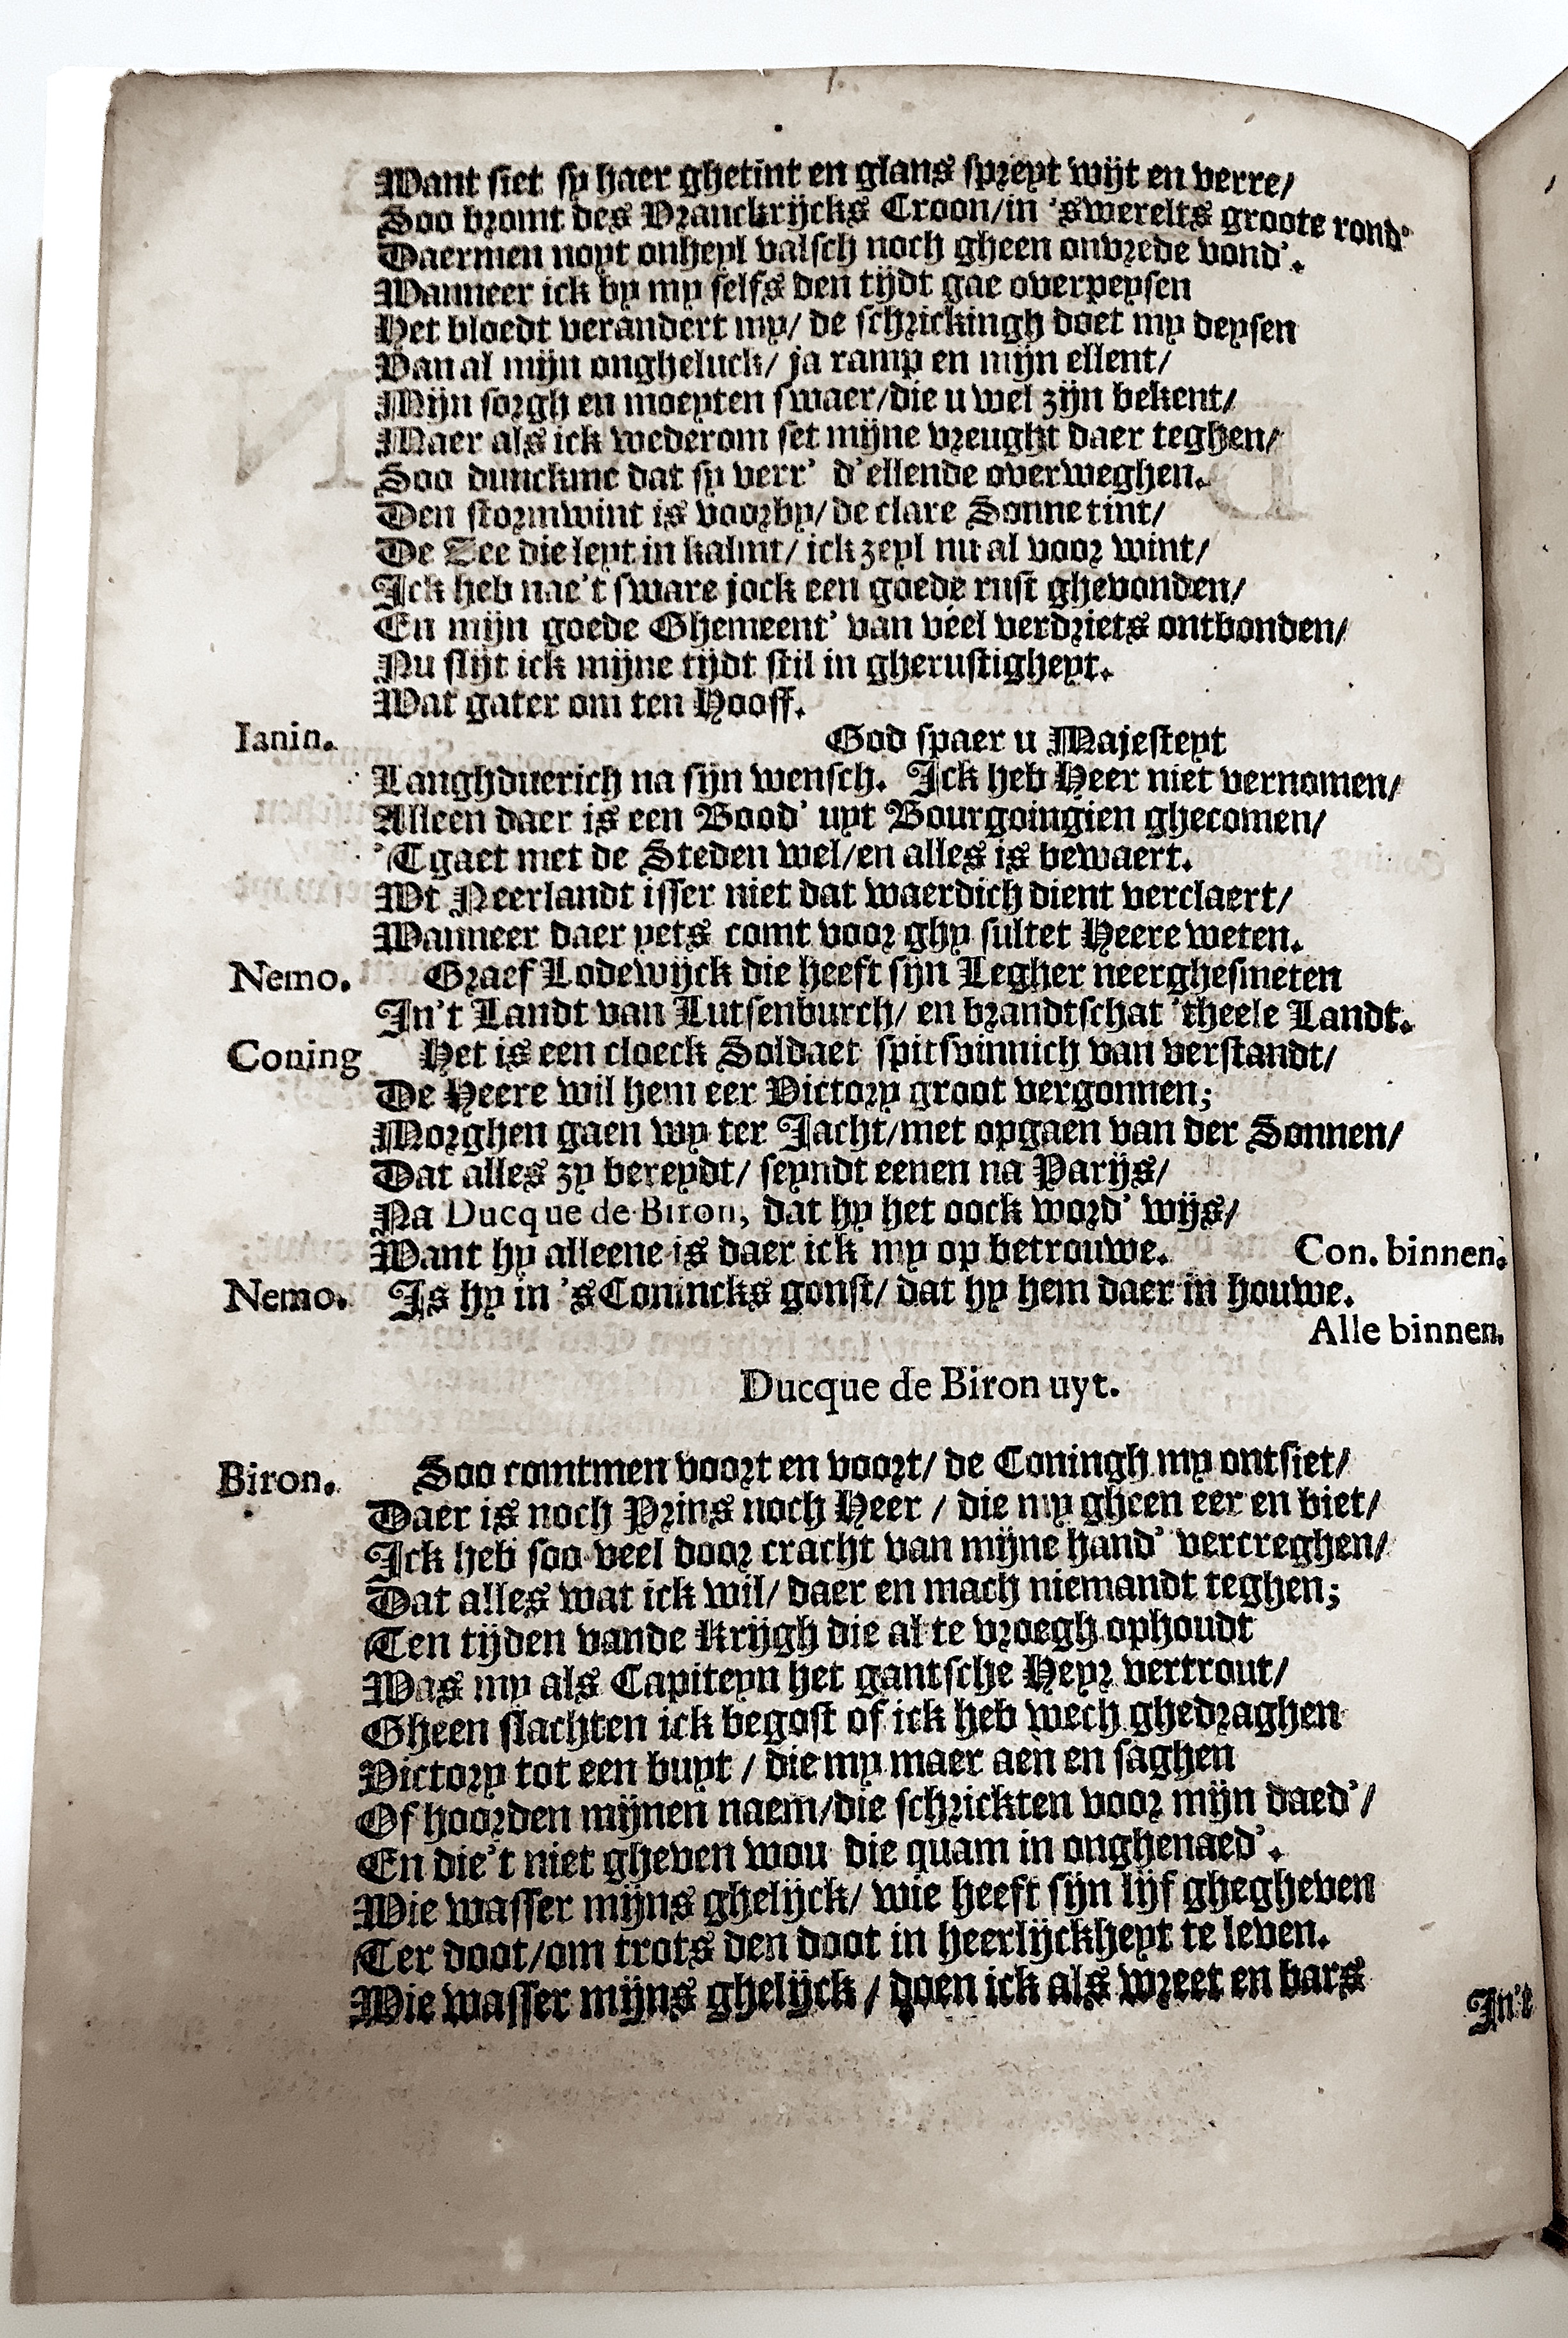 Want siet sy haer ghetint en glans spreyt wijt en verre/
Soo bromt des Vranckrijcks Croon/in 'swerelts groote rond'
Daermen noyt onheyl valsch noch gheen onvrede vond'.
Wanneer ick by my selfs den tijdt gae overpeysen
Het bloedt verandert my/ de schrickingh doet my deysen
Van al mijn ongheluck/ ja ramp en mijn ellent/
Mijn sorgh en moeyten swaer/die u wel zijn bekent/
Maer als ick wederom set mijne vreught daer teghen/
Soo dunckme dat sy verr' d'ellende overweghen.
Den stormwint is voorby/ de clare Sonne tint/
De Zee die leyt in kalmt/ ick zeyl nu al voor wint/
Ick heb nae't sware jock een goede rust ghevonden/
En mijn goede Ghemeent' van veel verdriets ontbonden/
Nu slijt ick mijne tijdt stil in gherustigheyt.
Wat gater om ten Hooff.
Ianin. God spaer u Majesteyt
Langhduerich na sijn wensch. Ick heb Heer niet vernomen/
Alleen daer is een Bood' uyt Bourgoingien ghecomen/
'Tgaet met de Steden wel/en alles is bewaert.
Wt Neerlandt isser niet dat waerdich dient verclaert/
Wanneer daer yets comt voor ghy sultet Heere weten.
Nemo. Graef Lodewijck die heeft sijn Legher neerghesmeten
In't Landt van Lutsenburch/ en brandtschat 'theele Landt.
Coning Het is een cloeck Soldaet spitsvinnich van verstandt/
De Heere wil hem eer Victory groot vergonnen;
Morghen gaen wy ter Jacht/met opgaen van der Sonnen/
Dat alles zy bereydt/ seyndt eenen na Parijs/
Na Ducque de Biron, dat hy het oock word' wijs/
Want hy alleene is daer ick my op betrouwe. Con. binnen.
Nemo. Is hy in 'sConincks gonst/ dat hy hem daer in houwe.
Alle binnen.
Ducque de Biron uyt.
Biron. Soo comtmen voort en voort/ de Coningh my ontsiet/
Daer is noch Prins noch Heer / die my gheen eer en biet/
Ick heb soo veel door cracht van mijne hand' vercreghen/
Dat alles wat ick wil/ daer en mach niemandt teghen;
Ten tijden vande Krijgh die al te vroegh ophoudt
Was my als Capiteyn het gantsche Heyr vertrout/
Gheen slachten ick begost of ick heb wech ghedraghen
Victory tot een buyt / die my maer aen en saghen
Of hoorden mijnen naem/die schrickten voor mijn daed'/
En die't niet gheven wou die quam in onghenaed'.
Wie wasser mijns ghelijck/ wie heeft sijn lijf ghegheven
Ter doot/om trots den doot in heerlijckheyt te leven.
Wie wasser mijns ghelijck / doen ick als wreet en bars
In't